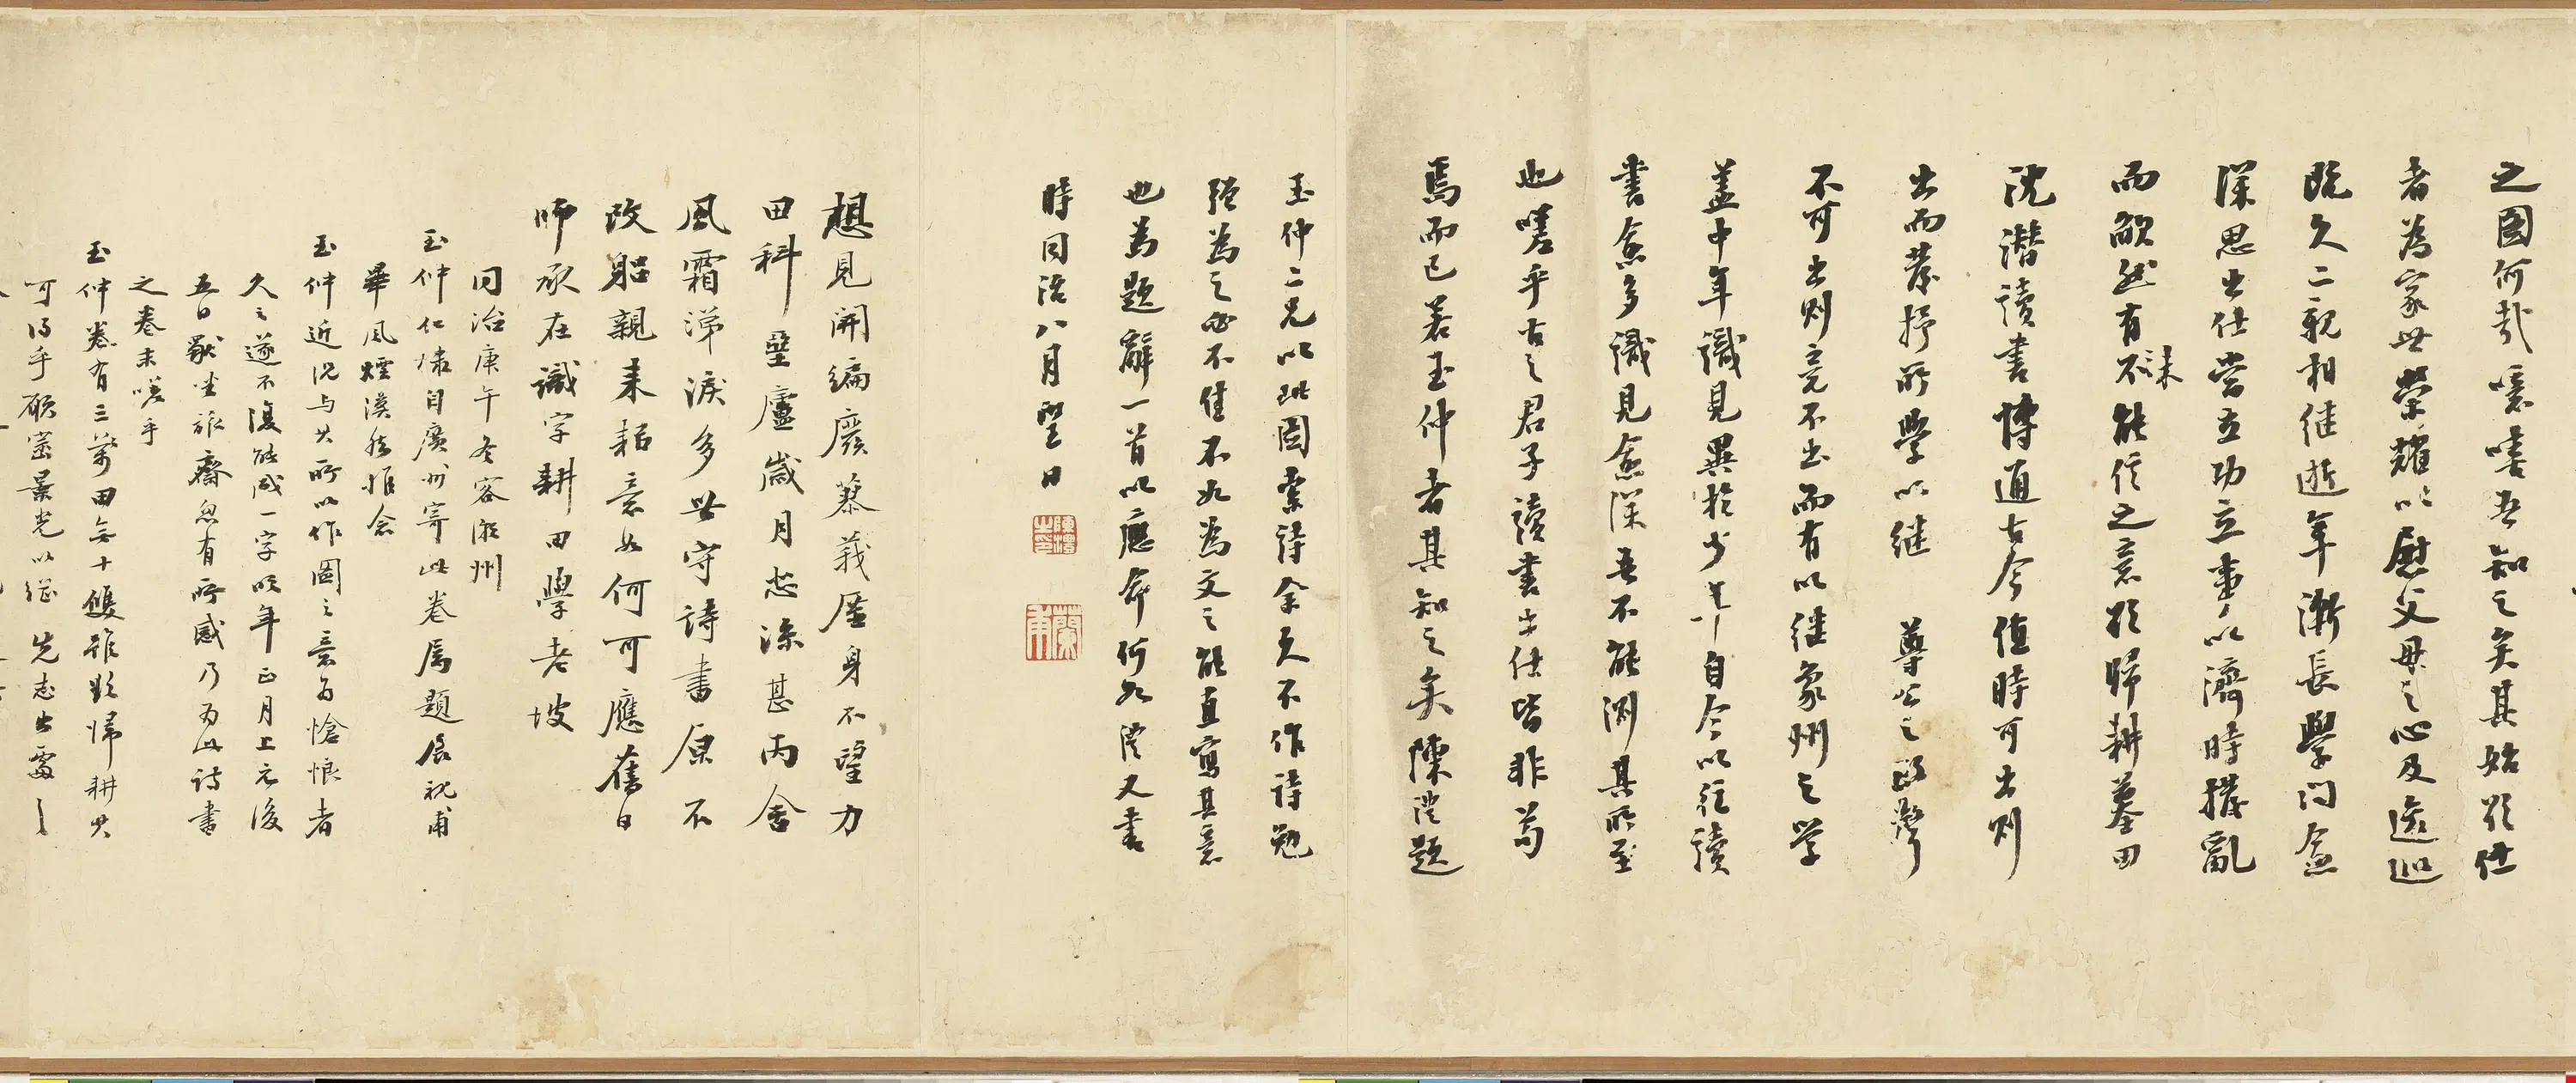 之圖何哉噫嘻吾知之矣其始欲仕
者為家世榮耀以慰父母之心及遠巡
既久二親相繼逝年漸長學問益
深思出仕當立功立事以濟時撥亂
而欿然有不能信之意於歸耕墓田
未
沈潛讀書博通古今值時可出則
出而荐抒所學以繼 尊公之政聲
不可出則竟不出而有以繼象州之學
蓋中年識見異於少年自今以往讀
書愈多識見愈深吾不能測其所至
也嗟乎古之君子讀書出仕皆非苟
焉而已若玉仲者其知之矣陳澧題
玉仲二兄以此圖索詩余久不作詩勉
強為之必不佳不如為文之能直寫其意
也為題辭一首以應命何如澧又書
時同治八月望日
陳澧之印
蘭甫
想見開編廢蓼莪屋身不望力
田科墾廬歲月悲深甚丙舍
風霜涕淚多世守詩書原不
改躬親耒耜意如何可應舊日
師承在識字耕田學老坡
同治庚午冬客潮州
玉仲仁棣自廣州寄此卷屬題展視甫
畢風煙漠然惟念
玉仲近況与其所以作圖之意有愴悢者
久之遂不復能成一字明年正月上元後
五日獨坐旅齋忽有所感乃為此詩書
之卷末嗟乎
玉仲卷有三萬田無十雙雖欲歸耕其
可得乎願崇景光以繼 先志出處之